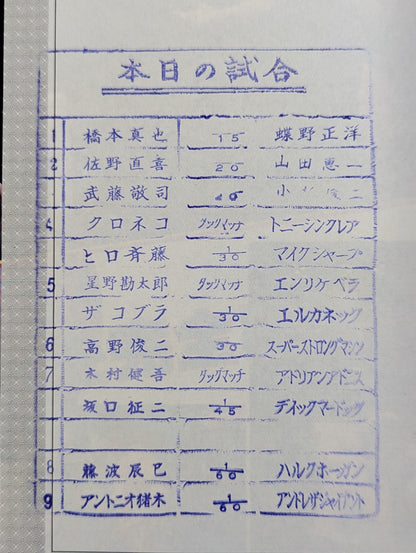 本日の試合
1 橋本真也 15 蝶野正洋
2 佐野直喜 20 山田恵一
武藤敬司 20 小 二
4 クロネコ タッグマッチ トニーシンクレア
ヒロ斉藤 1/30 マイクシャープ
5 星野勘太郎 タッグマッチ エンリケベラ
ザコブラ 1/30 エルカネック
6 高野俊二 30 スーパーストロングマシン
7 木村健吾 タッグマッチ アドリアンアドニス
坂口征二 1/45 デイックマードック
8 藤波辰巳 1/60 ハルクホーガン
9 アントニオ猪木 1/60 アンドレザジャイアント